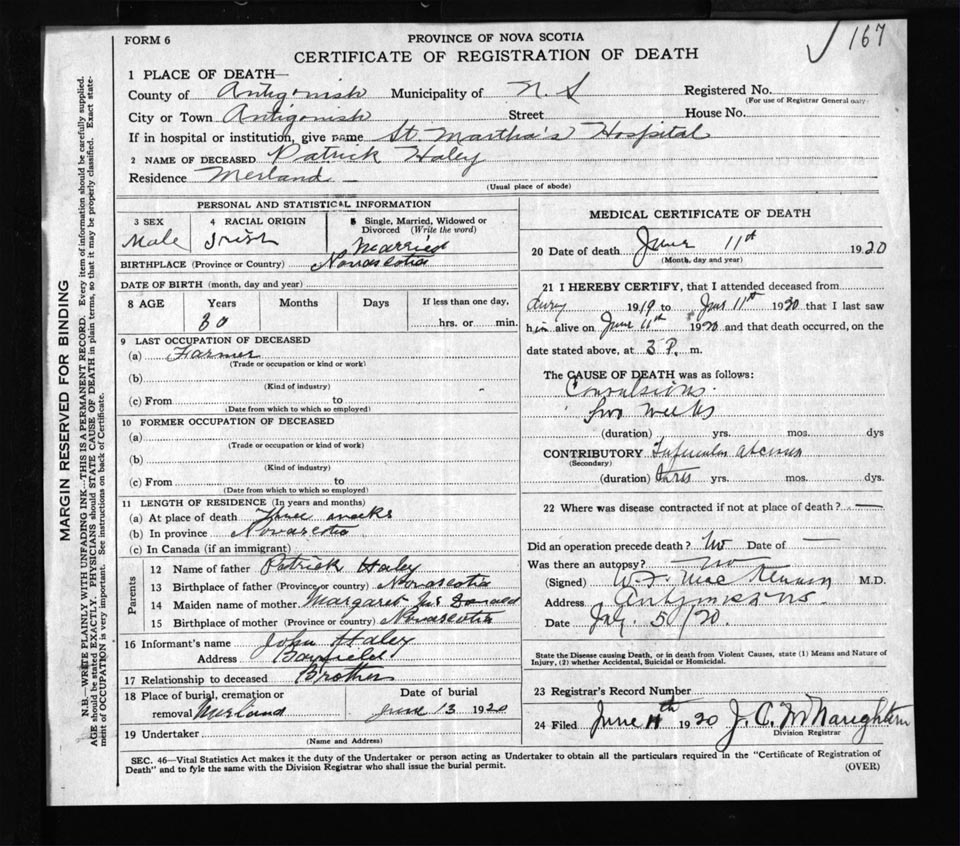 167
FORM 6
PROVINCE OF NOVA SCOTIA
CERTIFICATE OF REGISTRATION OF DEATH
MARGIN RESERVED FOR BINDING
N.B.—WRITE PLAINLY WITH UNFADING INK—THIS IS A PERMANENT RECORD. Every item of information should be carefully supplied.
AGE should be stated EXACTLY. PHYSICIANS should STATE CAUSE OF DEATH in plain terms, so that it may be properly classified. Exact state-
ment of OCCUPATION is very important. See instructions on back of Certificate.
1 PLACE OF DEATH—
County of Antigonish Municipality of N. S Registered No.
(For use of Registrar General only
City or Town Antigonish Street House No.
If in hospital or institution, give name St. Martha's Hospital
2 NAME OF DECEASED Patrick Haley
Residence Merland
(Usual place of abode)
PERSONAL AND STATISTICAL INFORMATION
3 SEX 4 RACIAL ORIGIN 5 Single, Married, Widowed or
Divorced (Write the word)
Male Irish Married
BIRTHPLACE (Province or Country) Novascotia
DATE OF BIRTH (month, day and year)
8 AGE Years Months Days If less than one day,
30 hrs. or min.
9 LAST OCCUPATION OF DECEASED
(a) Farmer
(Trade or occupation or kind or work)
(b)
(Kind of industry)
(c) From to
(Date from which to which so employed)
10 FORMER OCCUPATION OF DECEASED
(a)
(Trade or occupation or kind of work)
(b)
(Kind of industry)
(c) From to
(Date from which to which so employed)
11 LENGTH OF RESIDENCE (In years and months)
(a) At place of death Three weeks
(b) In province Novascotia
(c) In Canada (if an immigrant)
Parents
12 Name of father Patrick Haley
13 Birthplace of father (Province or country) Novascotia
14 Maiden name of mother Margaret McDonald
15 Birthplace of mother (Province or country) Novascotia
16 Informant's name John Haley
Address Bayfield
17 Relationship to deceased Brother
18 Place of burial, cremation or Date of burial
removal Merland June 13 1920
19 Undertaker
(Name and Address)
MEDICAL CERTIFICATE OF DEATH
20 Date of death June 11th 1920
(Month, day and year)
21 I HEREBY CERTIFY, that I attended deceased from
1919 to June 11th 1920 that I last saw
him alive on June 11th 1920 and that death occurred, on the
date stated above, at 3 P. m.
The CAUSE OF DEATH was as follows:
Convulsions.
two weeks
(duration) yrs. mos. dys
CONTRIBUTORY
(Secondary)
(duration) yrs. mos. dys.
22 Where was disease contracted if not at place of death? —
Did an operation precede death? No Date of —
Was there an autopsy? No
(Signed) M.D.
Address
Date
State the Disease causing Death, or in death from Violent Causes, state (1) Means and Nature of
Injury, (2) whether Accidental, Suicidal or Homicidal.
23 Registrar's Record Number
24 Filed June th 1920 J. C. McNaughton
Division Registrar
SEC. 46—Vital Statistics Act makes it the duty of the Undertaker or person acting as Undertaker to obtain all the particulars required in the "Certificate of Registration of
Death" and to fyle the same with the Division Registrar who shall issue the burial permit.
(OVER)